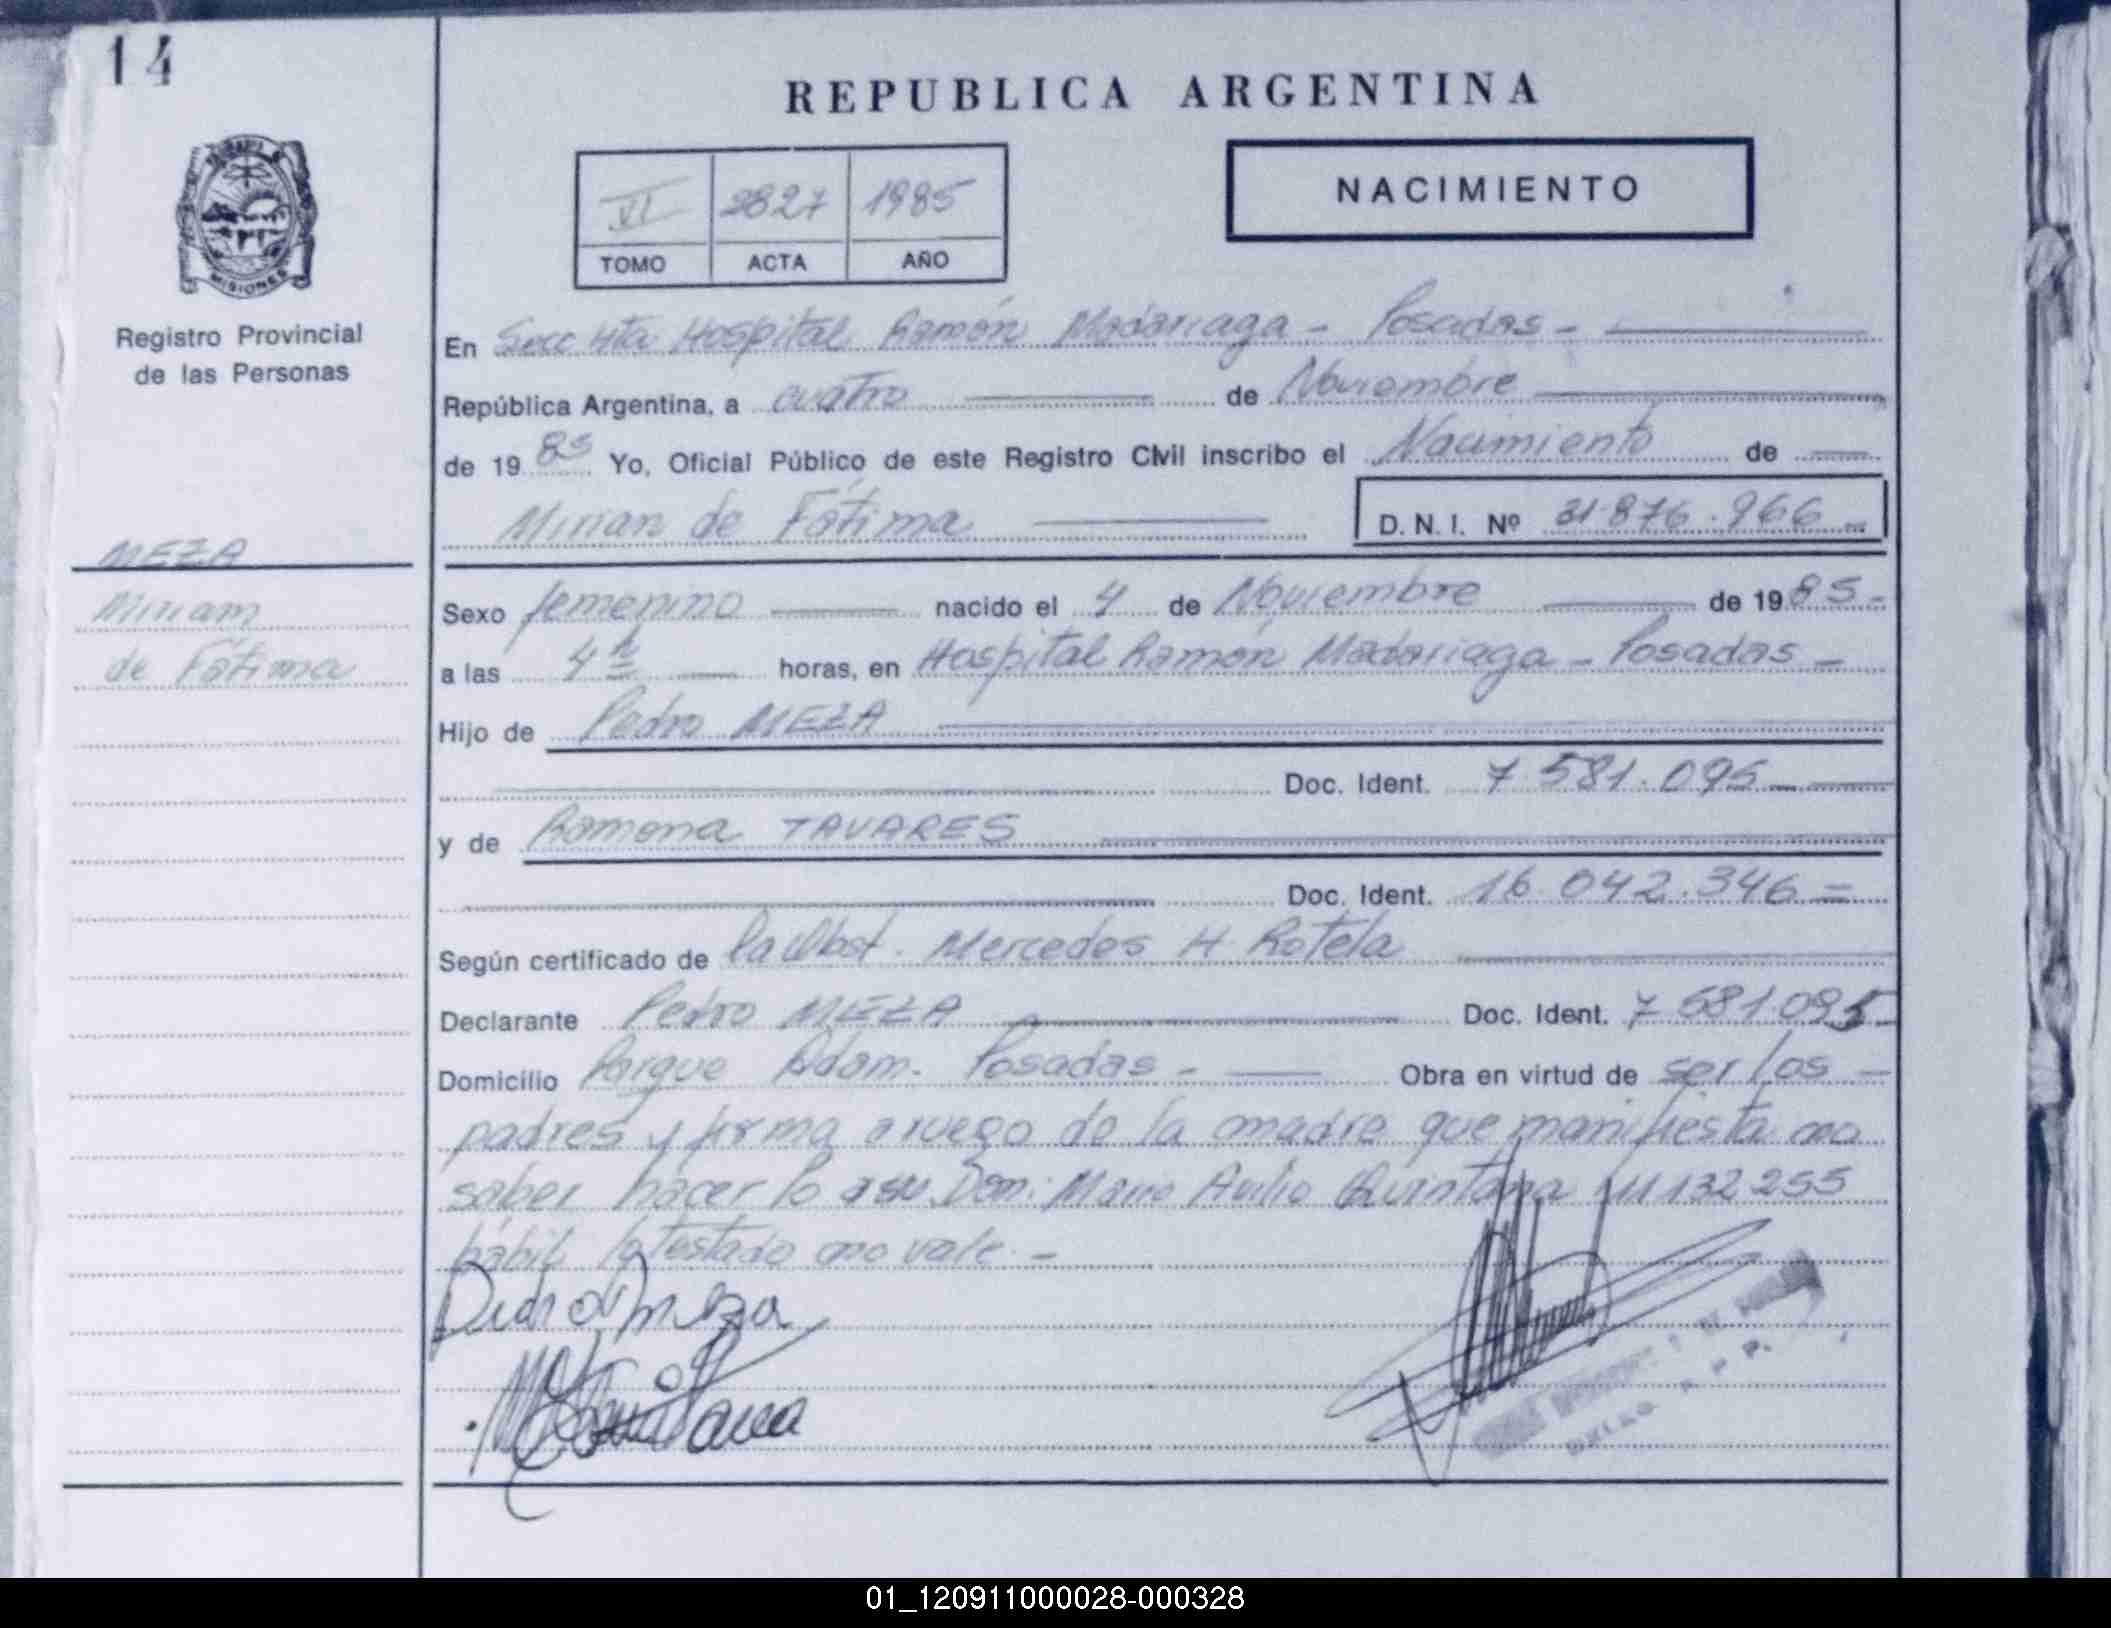 14
REPUBLICA ARGENTINA
NACIMIENTO
VI 2827 1985
TOMO ACTA AÑO
MISIONES
Registro Provincial
de las Personas
En Secc 4ta Hospital Ramón Madariaga - Posadas -
República Argentina, a cuatro de Noviembre
de 19 85 Yo, Oficial Público de este Registro Civil inscribo el Nacimiento de
Mirian de Fátima D. N. I. Nº 31.876.966
MEZA
Miriam
de Fátima
Sexo femenino nacido el 4 de Noviembre de 19 85.-
a las 4 h horas, en Hospital Ramón Madariaga - Posadas -
Hijo de Pedro MEZA
Doc. Ident. 7 581.095
y de Ramona TAVARES
Doc. Ident. 16.042.346 =
Según certificado de Mercedes H. Rotela
Declarante Pedro MEZA Doc. Ident. 7 581.095
Domicilio Parque Adam. Posadas - Obra en virtud de ser los -
padres y firma a ruego de la madre que manifiesta no
saber hacerlo Don: Quintana 11 132 255
hábil lo testado no vale. -
Pedro Meza
Quintana
01_120911000028-000328